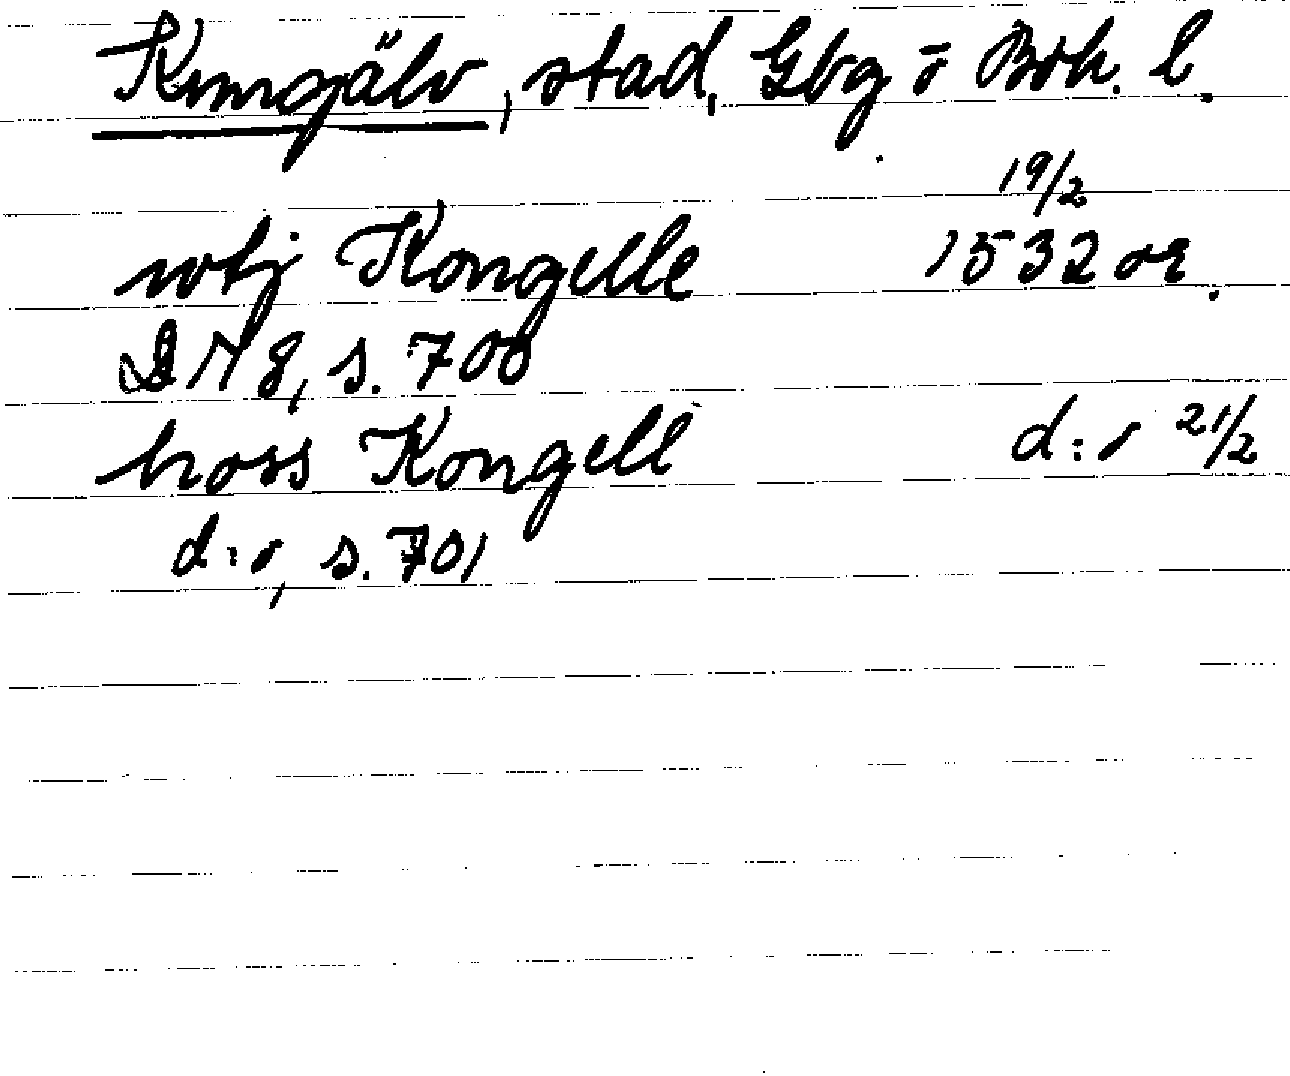 Kungälv, stad, Gbg o Boh. l.
19/2
wtj Kongelle 1532 or.
DN 8, s. 700
hoss Kongell d:o 21/2
d:o, s. 701